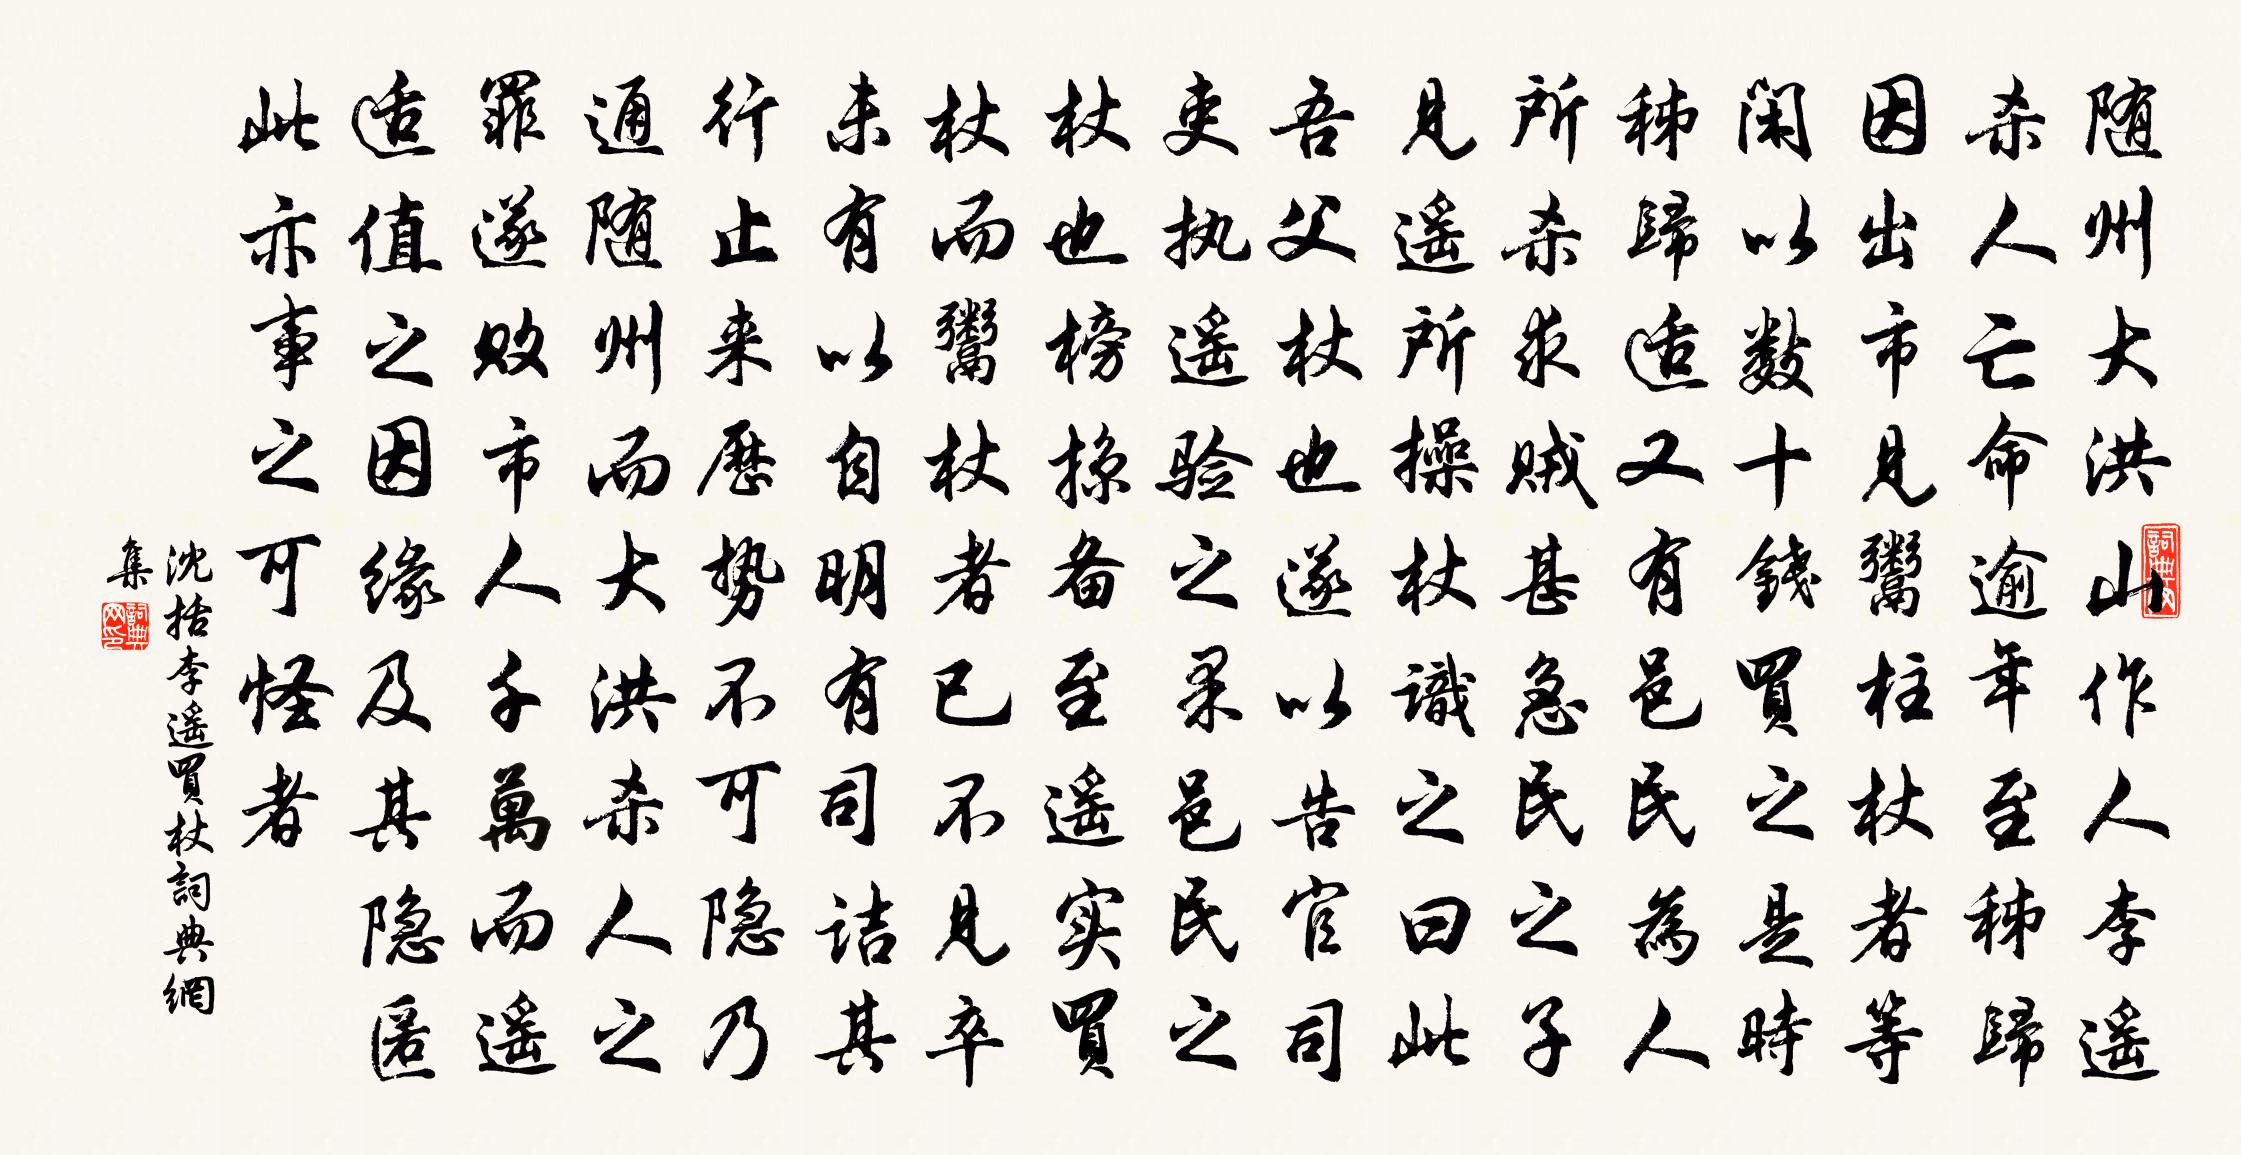 随州大洪山作人李遥
杀人亡命逾年至秭歸
因出市見鬻柱杖者等
閑以数十錢買之是時
秭歸适又有邑民為人
所杀求贼甚急民之子
見遥所操杖識之曰此
吾父杖也遂以告官司
吏执遥验之果邑民之
杖也榜掠备至遥实買
杖而鬻杖者已不見卒
未有以自明有司诘其
行止来歷势不可隐乃
通随州而大洪杀人之
罪遂败市人千萬而遥
适值之因缘及其隐匿
此亦事之可怪者
沈括李遥買杖詞典網
集
詞典网
詞典网印